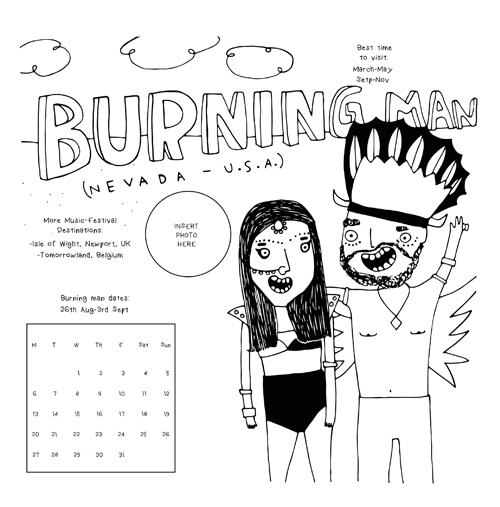 Best time
to visit:
March-May
Setp-Nov
BURNING MAN
(NEVADA - U.S.A.)
More Music-Festival
Destinations:
-Isle of Wight, Newport, UK
-Tomorrowland, Belgium
INSERT
PHOTO
HERE
Burning man dates:
26th Aug-3rd Sept
M T W Th F Sat Sun
1 2 3 4 5
6 7 8 9 10 11 12
13 14 15 16 17 18 19
20 21 22 23 24 25 26
27 28 29 30 31